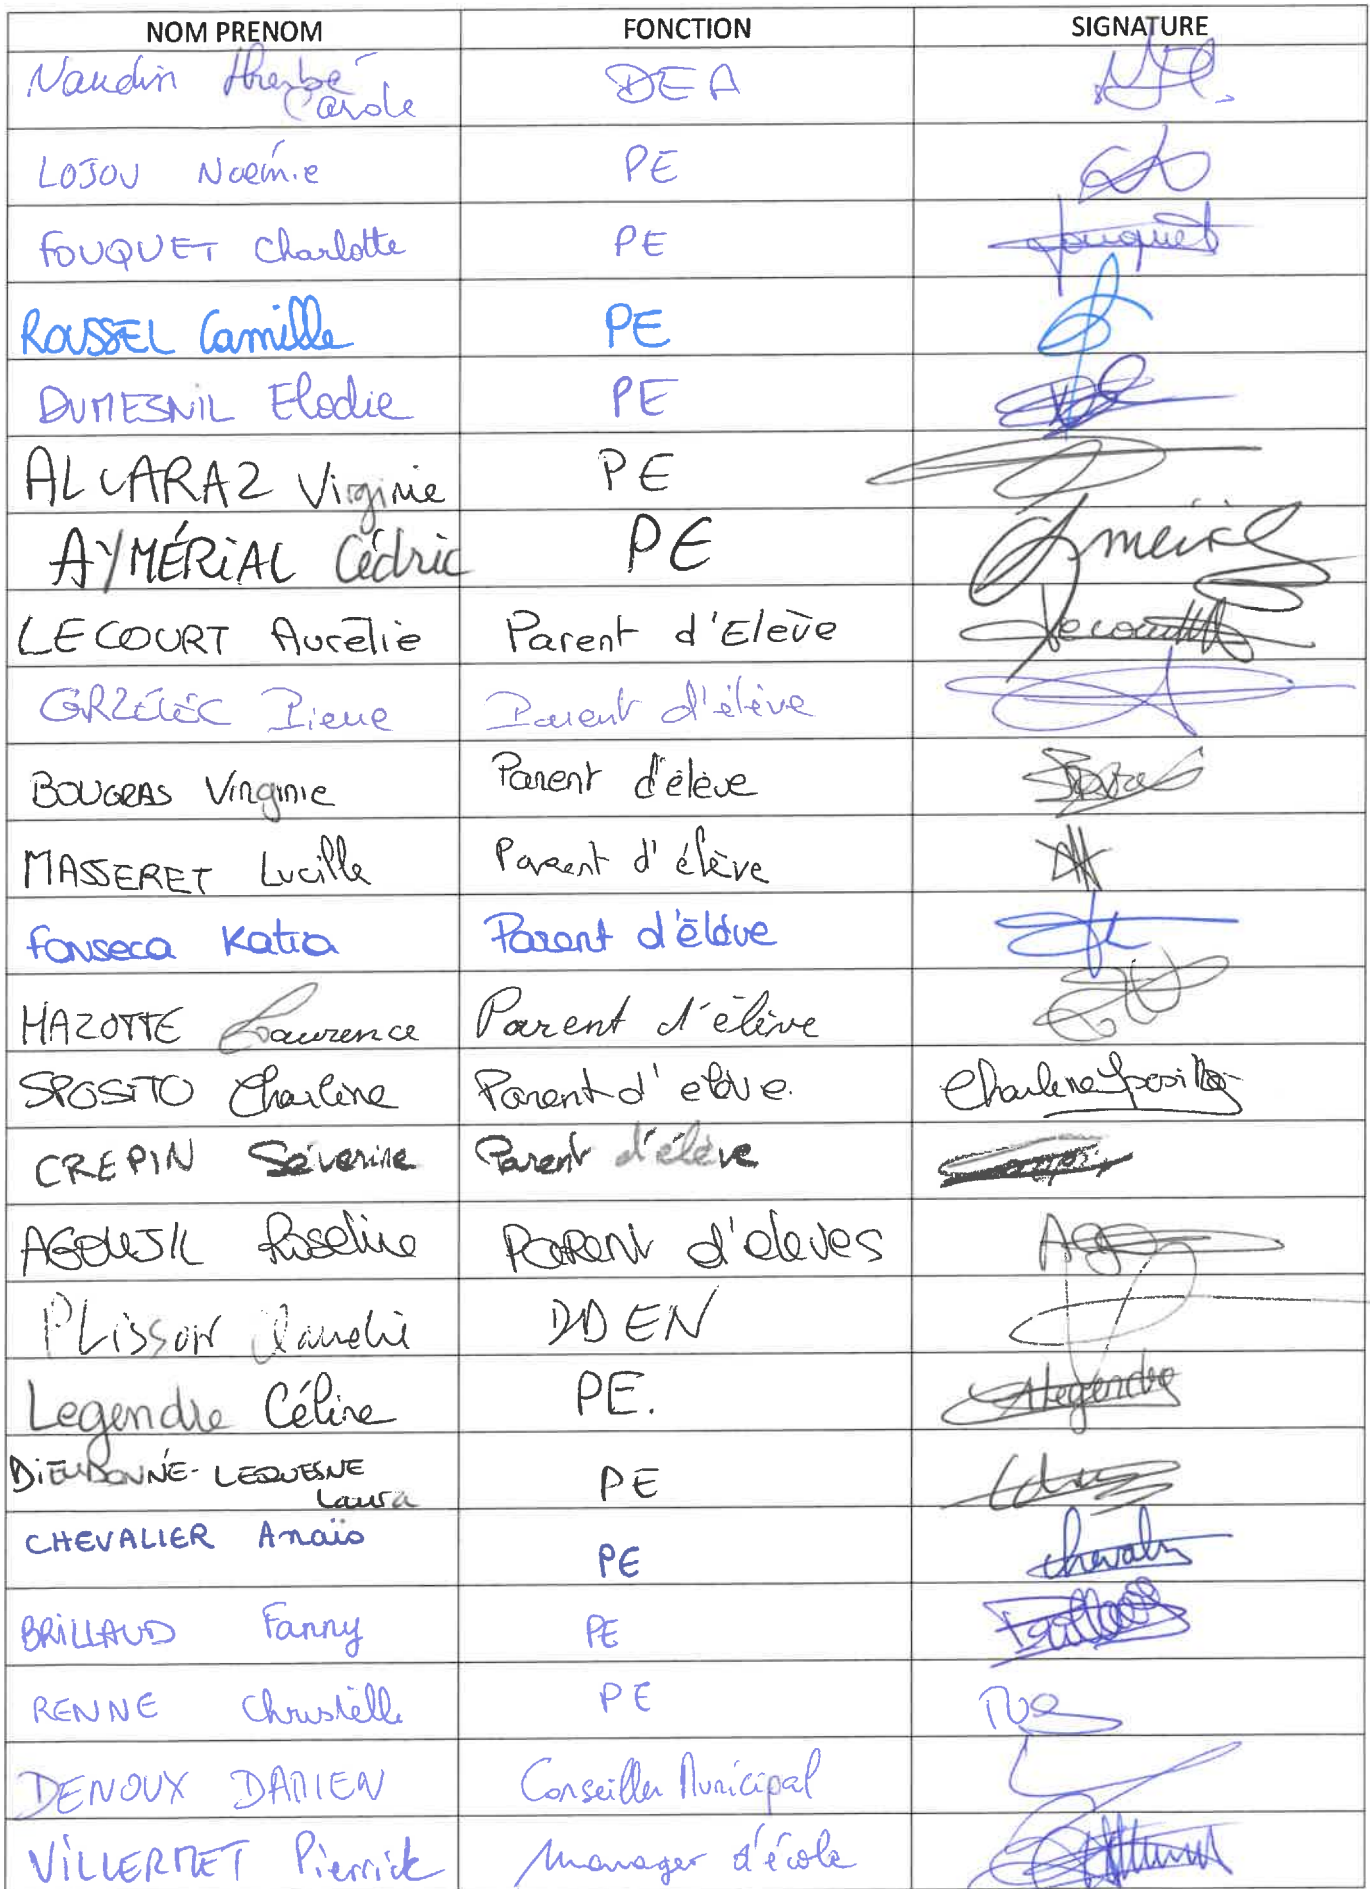 NOM PRENOM FONCTION SIGNATURE
Naudin Carole DEA
LOJOU Noémie PE
FOUQUET Charlotte PE fouquet
ROUSSEL Camille PE
DUMESNIL Elodie PE
ALCARAZ Virginie PE
AYMÉRIAL Cédric PE
LECOURT Aurélie Parent d'Elève Lecourt
GRZÉLÉC Pierre Parent d'élève
BOUGRAS Virginie Parent d'élève
MASSERET Lucille Parent d'élève
Fonseca Katia Parent d'élève
MAZOTTE Laurence Parent d'élève
SPOSITO Charlène Parent d'elève. Charlene Sposito
CREPIN Séverine Parent d'élève
Roseline PARENT d'eleves
PLISSON DDEN
Legendre Céline PE. Legendre
DIEUDONNÉ-LEQUESNE
Laura PE
CHEVALIER Anaïs PE chevalier
BRILLAUD Fanny PE
RENNE Christelle PE
DENOUX DAMIEN Conseiller Municipal
VILLERMET Pierrick Manager d'école